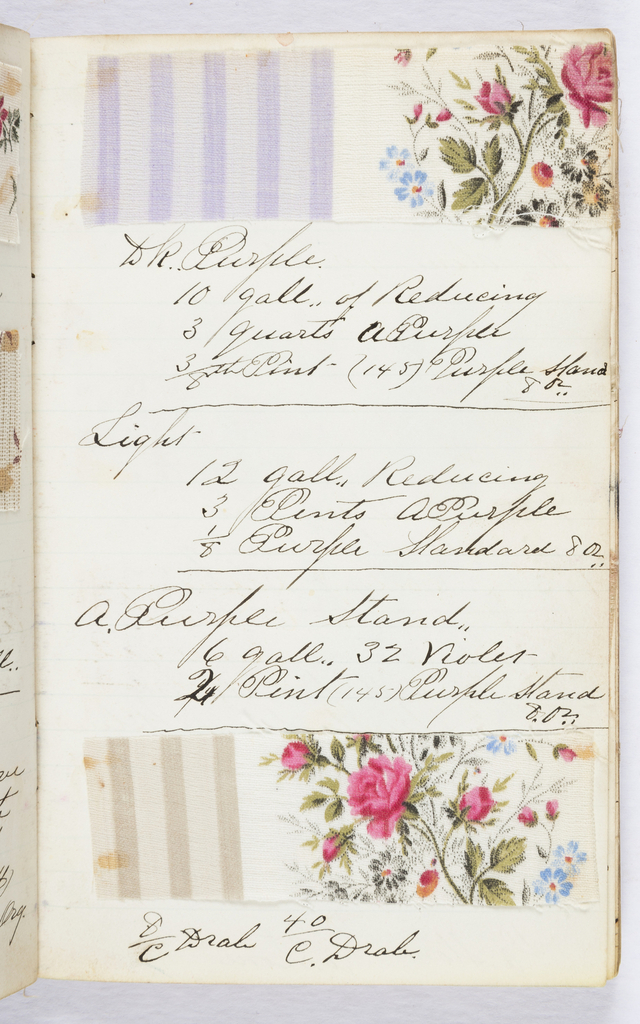 Dk. Purple.
10 gall,, of Reducing
3 quarts A Purple
3/8th Pint (145) Purple Stand
8 oz.
Light
12 gall,, Reducing
3 Pints A Purple
1/8 Purple Standard 8 oz.
A. Purple Stand,,
6 gall,, 32 Violet
Pint (145) Purple Stand
8. oz.
8/C Drab 40/C. Drab.